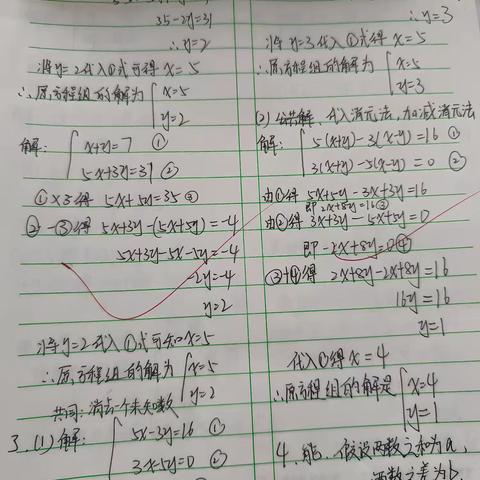 35-2y=31
∴y=2
将y=2代入①式可得 x=5
∴原方程组的解为 { x=5
y=2
解: { x+y=7 ①
5x+3y=31 ②
①×5得 5x+5y=35 ③
②-③得 5x+3y-(5x+5y)=-4
5x+3y-5x-5y=-4
-2y=-4
y=2
将y=2代入①式可知x=5
∴原方程组的解为 { x=5
y=2
共同:消去一个未知数
3.(1)解: { 5x-3y=16 ①
3x-5y=0 ②
∴y=3
将y=3代入①式得 x=5
∴原方程组的解为 { x=5
y=3
(2) 代入消元法,加减消元法
解: { 5(x+y)-3(x-y)=16 ①
3(x+y)-5(x-y)=0 ②
由①得 5x+5y-3x+3y=16
即 2x+8y=16 ③
由②得 3x+3y-5x+5y=0
即-2x+8y=0 ④
③+④得 2x+8y-2x+8y=16
16y=16
y=1
代入①得 x=4
∴原方程组的解是 { x=4
y=1
4.能,假设两数之和为a,
两数之差为b